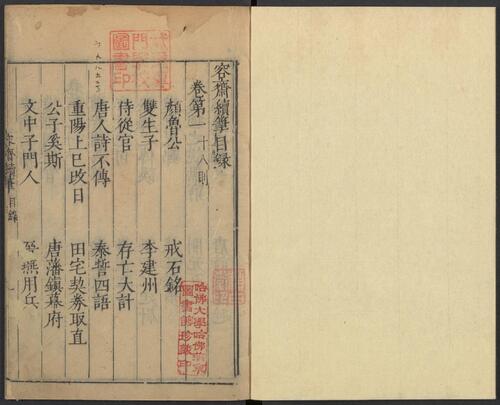 容齋續筆目錄
卷第一 十八則
顏魯公 戒石銘
雙生子 李建州
侍從官 存亡大計
唐人詩不傳 秦誓四語
重陽上巳改日 田宅契券取直
公子奚斯 唐藩鎮幕府
文中子門人 燕用兵
容齋續筆 目錄
圖書印
哈佛大學哈佛
圖書館珍藏印